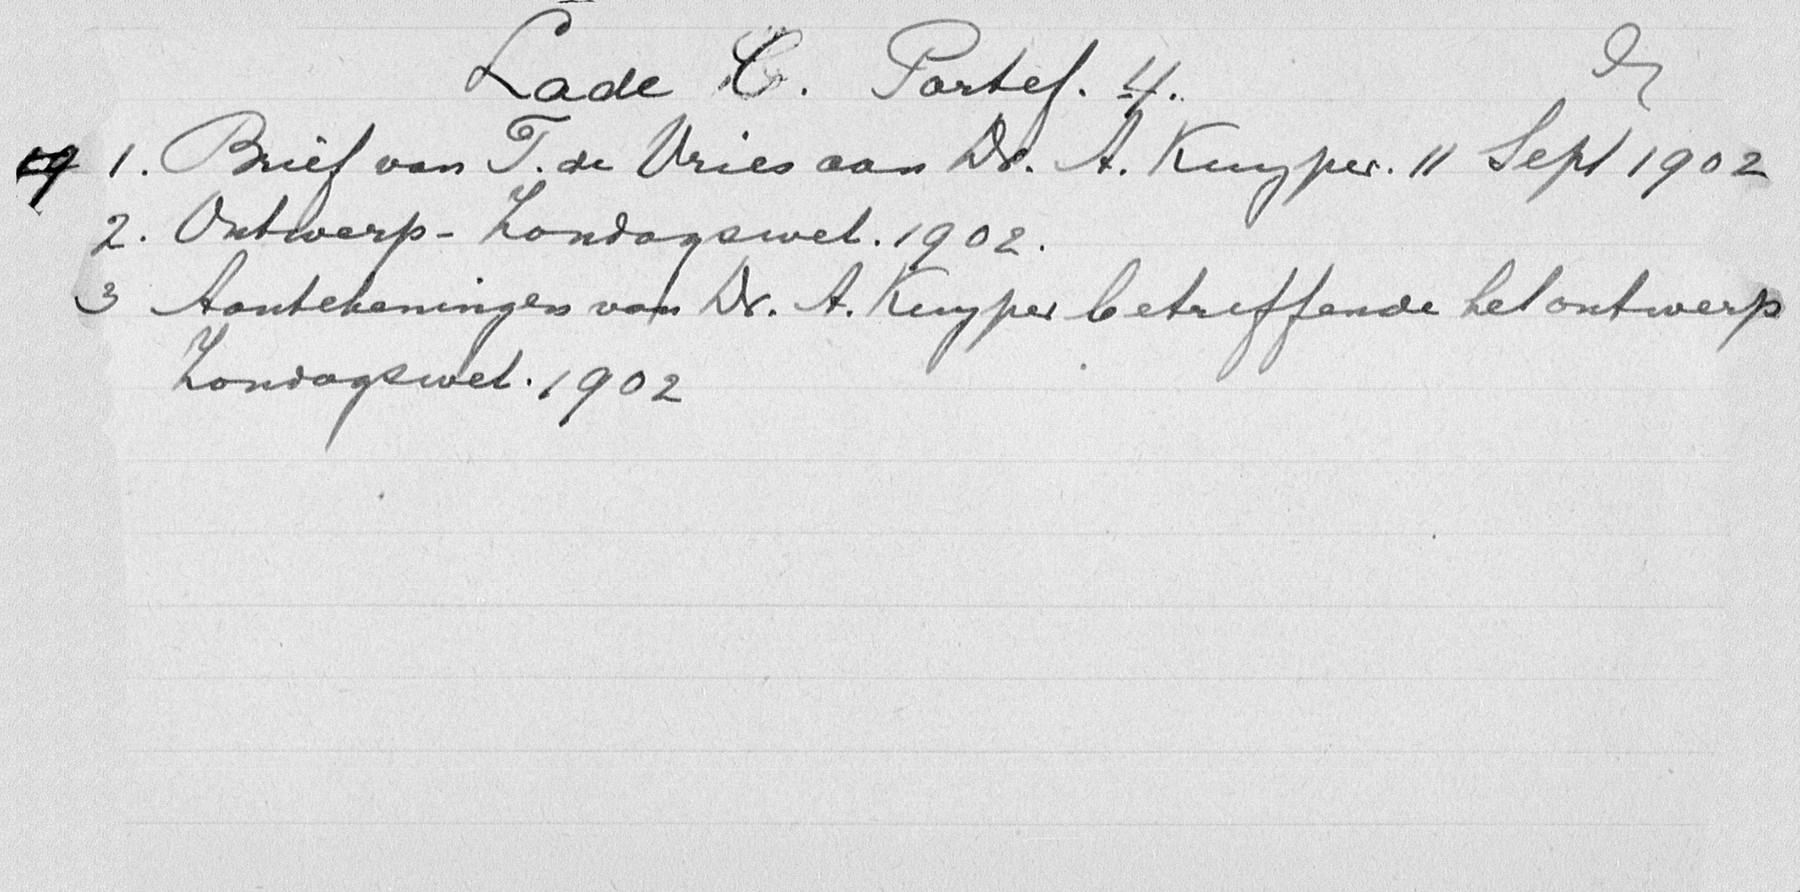 Lade C. Portef. 4.
1. Brief van T. de Vries aan Dr. A. Kuyper. 11 Sept 1902
2. Ontwerp - Zondagswet. 1902.
3 Aantekeningen van Dr. A. Kuyper betreffende het ontwerp
Zondagswet. 1902